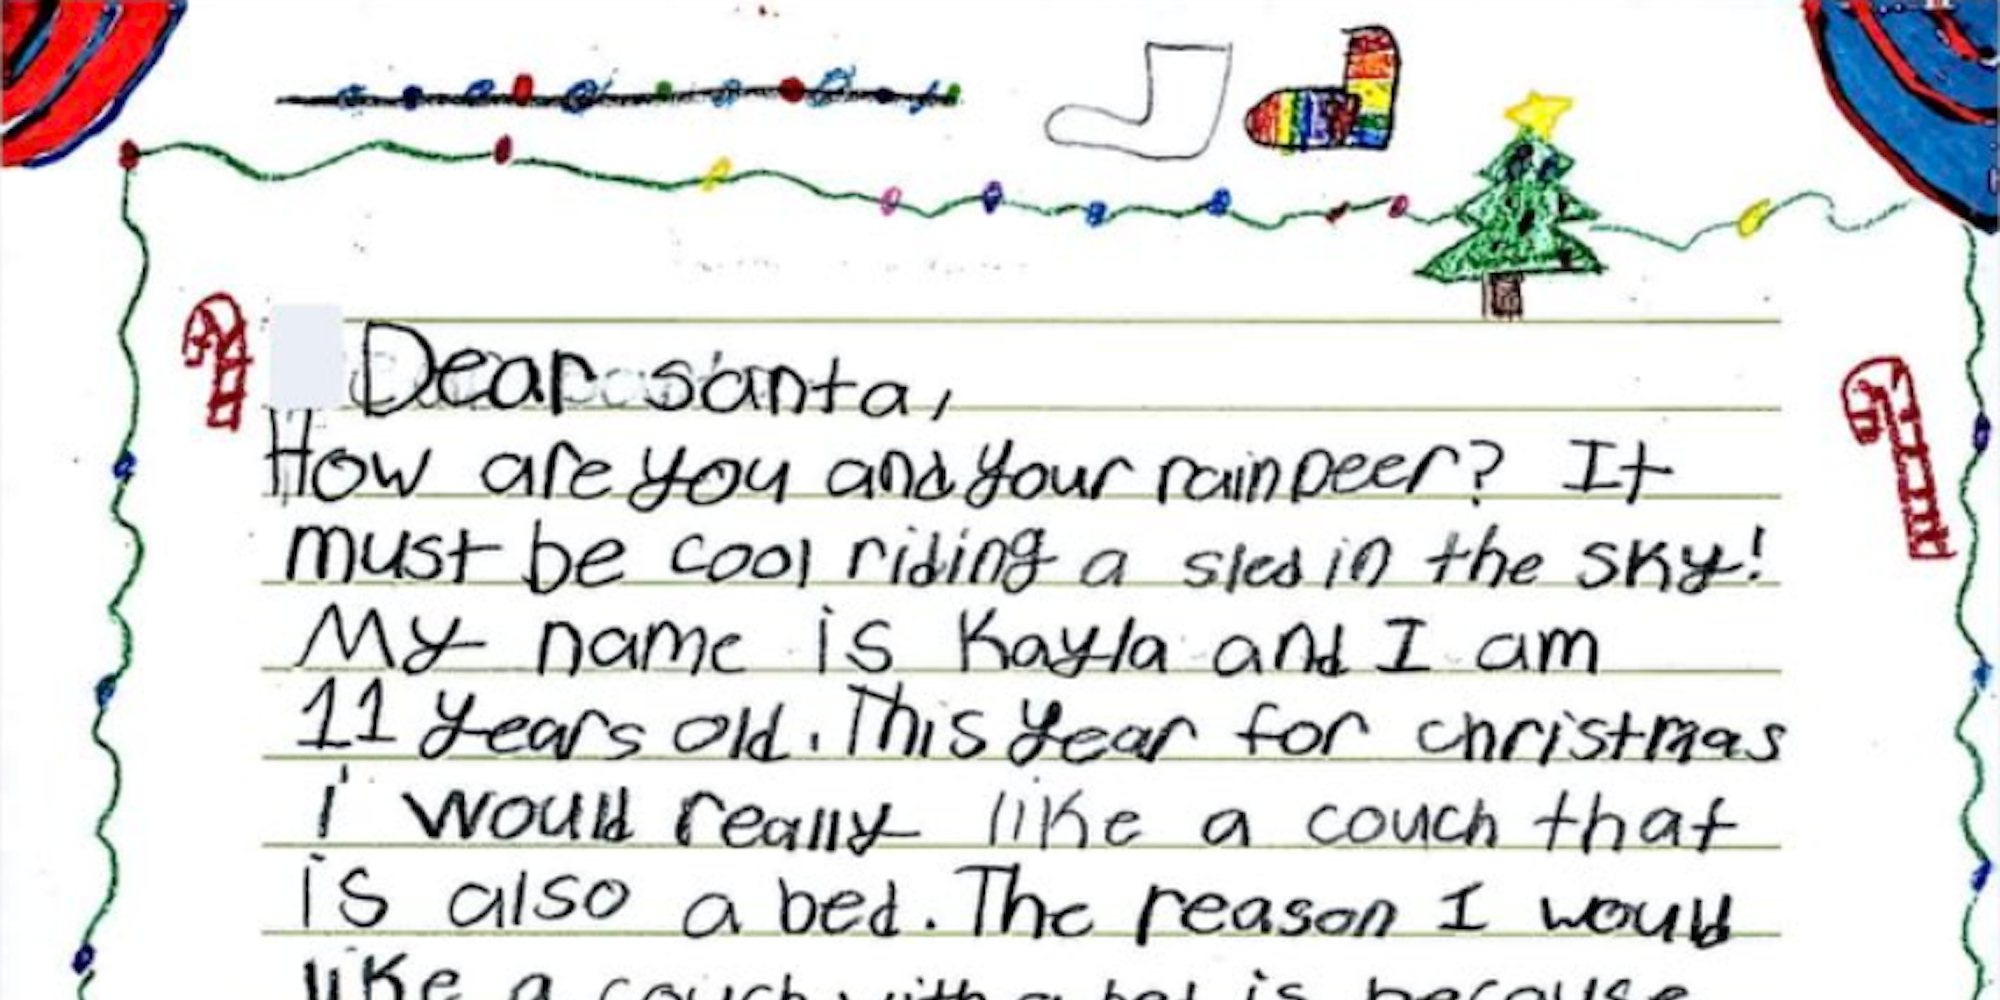 Dear santa,
How are you and your rainDeer? It
must be cool riding a sled in the sky!
My name is Kayla and I am
11 years old. This year for christmas
I would really like a couch that
is also a bed. The reason I would
like a couch with a bed is because